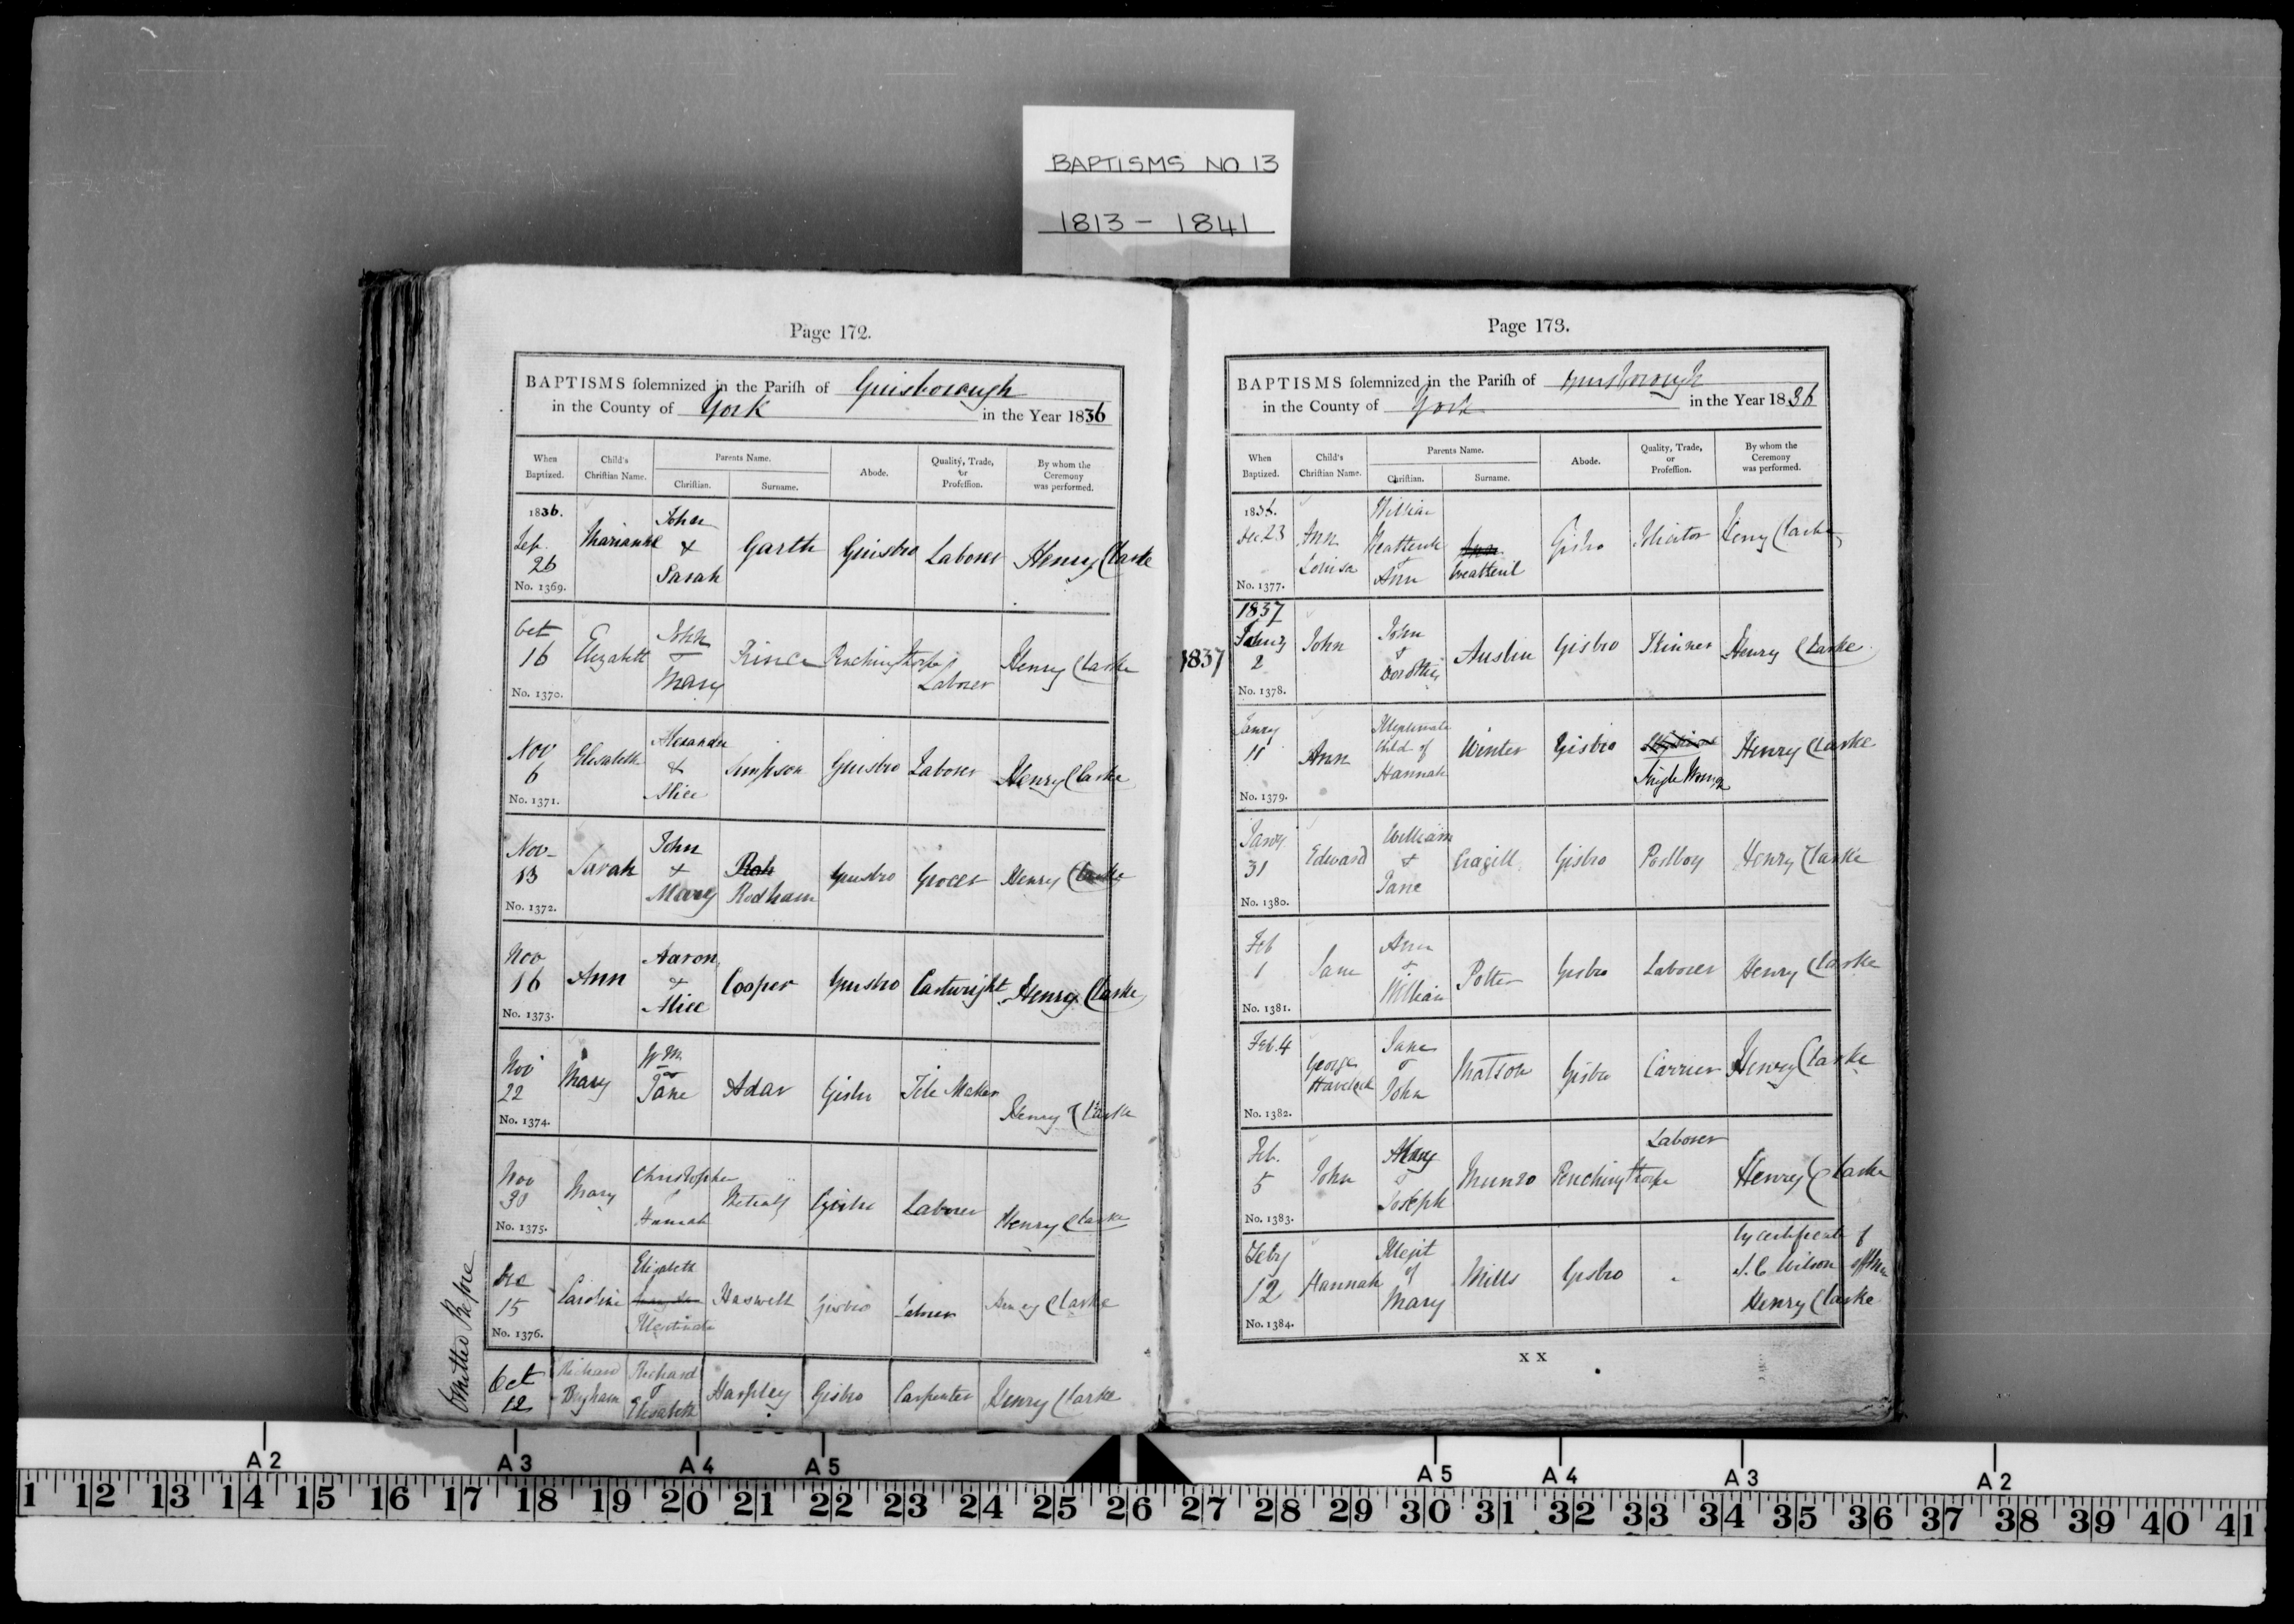 BAPTISMS NO 13
1813 - 1841
Page 172.
BAPTISMS solemnized in the Parish of Guisborough
in the County of York in the Year 1836
When Baptized.
Child's Christian Name.
Parents Name.
Christian.
Surname.
Abode.
Quality, Trade, or Profession.
By whom the Ceremony was performed.
1836. Sep. 26 No. 1369. Marianne John & Sarah Garth Guisbro Laborer Henry Clarke
Oct 16 No. 1370. Elizabeth John & Mary Prince Pinchingthorpe Laborer Henry Clarke
Nov 6 No. 1371. Elisabeth Alexander & Alice Simpson Guisbro Laborer Henry Clarke
Nov 13 No. 1372. Sarah John & Mary Rodham Guisbro Grocer Henry Clarke
Nov 16 No. 1373. Ann Aaron & Alice Cooper Guisbro Cartwright Henry Clarke
Nov 22 No. 1374. Mary Wm & Jane Adar Gisbro Tile Maker Henry Clarke
Nov 30 No. 1375. Mary Christopher & Hannah Metcalf Gisbro Laborer Henry Clarke
Dec 15 No. 1376. Caroline Elizabeth Illegitimate Haswell Gisbro Laborer Henry Clarke
Omitted Before
Oct 12 Richard Richard & Elisabeth Harpley Gisbro Carpenter Henry Clarke
Page 173.
BAPTISMS solemnized in the Parish of Guisborough
in the County of York in the Year 1836
When Baptized.
Child's Christian Name.
Parents Name.
Christian.
Surname.
Abode.
Quality, Trade, or Profession.
By whom the Ceremony was performed.
1836. Dec 23 No. 1377. Ann Louisa William & Ann Gisbro Solicitor Henry Clarke
1837
1837 2 No. 1378. John John & Dorothy Austin Gisbro Skinner Henry Clarke
Janry 11 No. 1379. Ann Illegitimate Child of Hannah Winter Gisbro Single Woman Henry Clarke
Janry 31 No. 1380. Edward William & Jane Cragill Gisbro Postboy Henry Clarke
Feb 1 No. 1381. Jane Ann & William Potter Gisbro Laborer Henry Clarke
Feb. 4 No. 1382. George Havelock Jane & John Matson Gisbro Carrier Henry Clarke
Feb. 5 No. 1383. John Mary & Joseph Munro Pinchingthorpe Laborer Henry Clarke
Feby 12 No. 1384. Hannah Illegit of Mary Mills Gisbro by certificate of J. C. Wilson Henry Clarke
X X
A2 A3 A4 A5 A5 A4 A3 A2
1 12 13 14 15 16 17 18 19 20 21 22 23 24 25 26 27 28 29 30 31 32 33 34 35 36 37 38 39 40 41